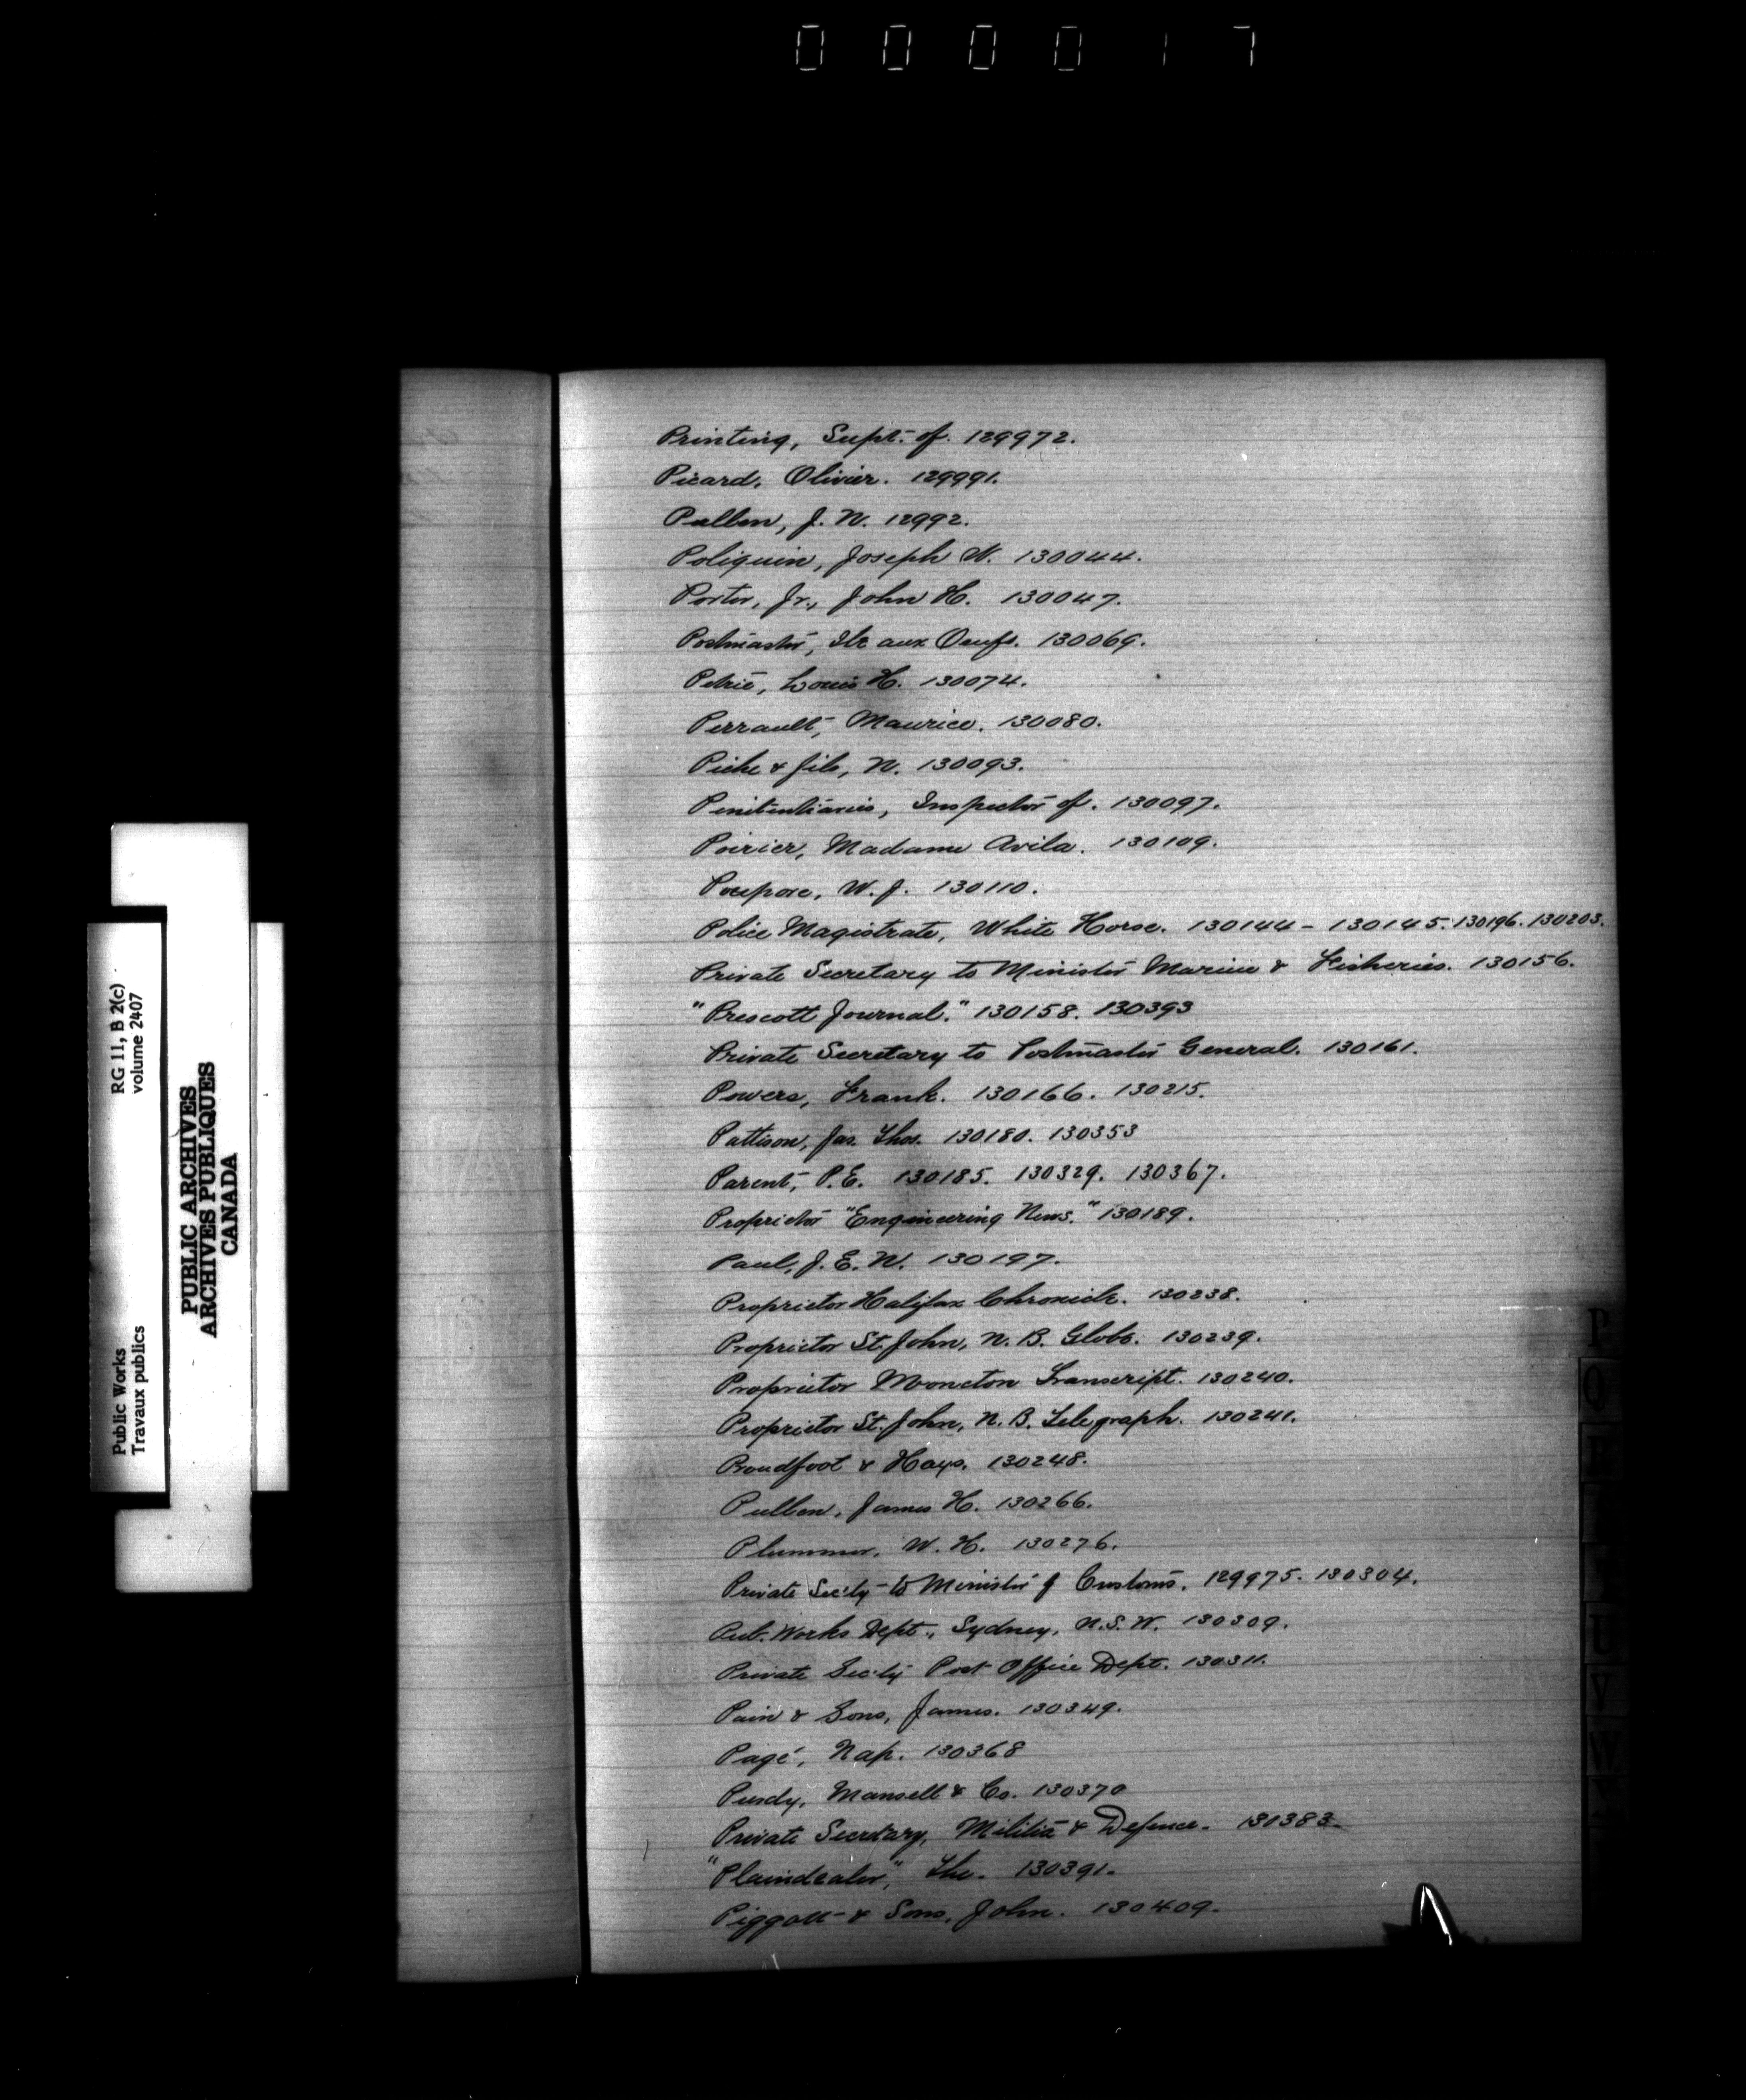 000017
Printing, Supt. of. 129972.
Picard, Olivier. 129991.
Pullen, J. N. 12992.
Poliquin, Joseph N. 130044.
Porter, Jr., John H. 130047.
Postmaster, Ile aux Oeufs. 130069.
Petrie, Louis H. 130074.
Perrault, Maurice. 130080.
Piche & fils, N. 130093.
Penitentiaries, Inspector of. 130097.
Poirier, Madame Avila. 130109.
Poupore, W. J. 130110.
Police Magistrate, White Horse. 130144 - 130145. 130196. 130203.
Private Secretary to Minister Marine & Fisheries. 130156.
"Prescott Journal." 130158. 130393
Private Secretary to Postmaster General. 130161.
Powers, Frank. 130166. 130215.
Pattison, Jas. Thos. 130180. 130353
Parent, P.E. 130185. 130329. 130367.
Proprietor "Engineering News." 130189.
Paul, J. E. W. 130197.
Proprietor Halifax Chronicle. 130238.
Proprietor St. John, N. B. Globe. 130239.
Proprietor Moncton Transcript. 130240.
Proprietor St. John, N. B. Telegraph. 130241.
Proudfoot & Hays. 130248.
Pullen, James H. 130266.
Plummer, W. H. 130276.
Private Sec'ty to Minister of Customs. 129975. 130304.
Pub. Works Dept., Sydney, N.S.W. 130309.
Private Sec'ty Post Office Dept. 130311.
Pain & Sons, James. 130349.
Pagé, Nap. 130368
Purdy, Mansell & Co. 130370
Private Secretary, Militia & Defence. 130383.
"Plaindealer", The. 130391.
Piggott & Sons, John. 130409.
P
Q
U
V
W
Public Works
Travaux publics
RG 11, B 2(c)
volume 2407
PUBLIC ARCHIVES
ARCHIVES PUBLIQUES
CANADA